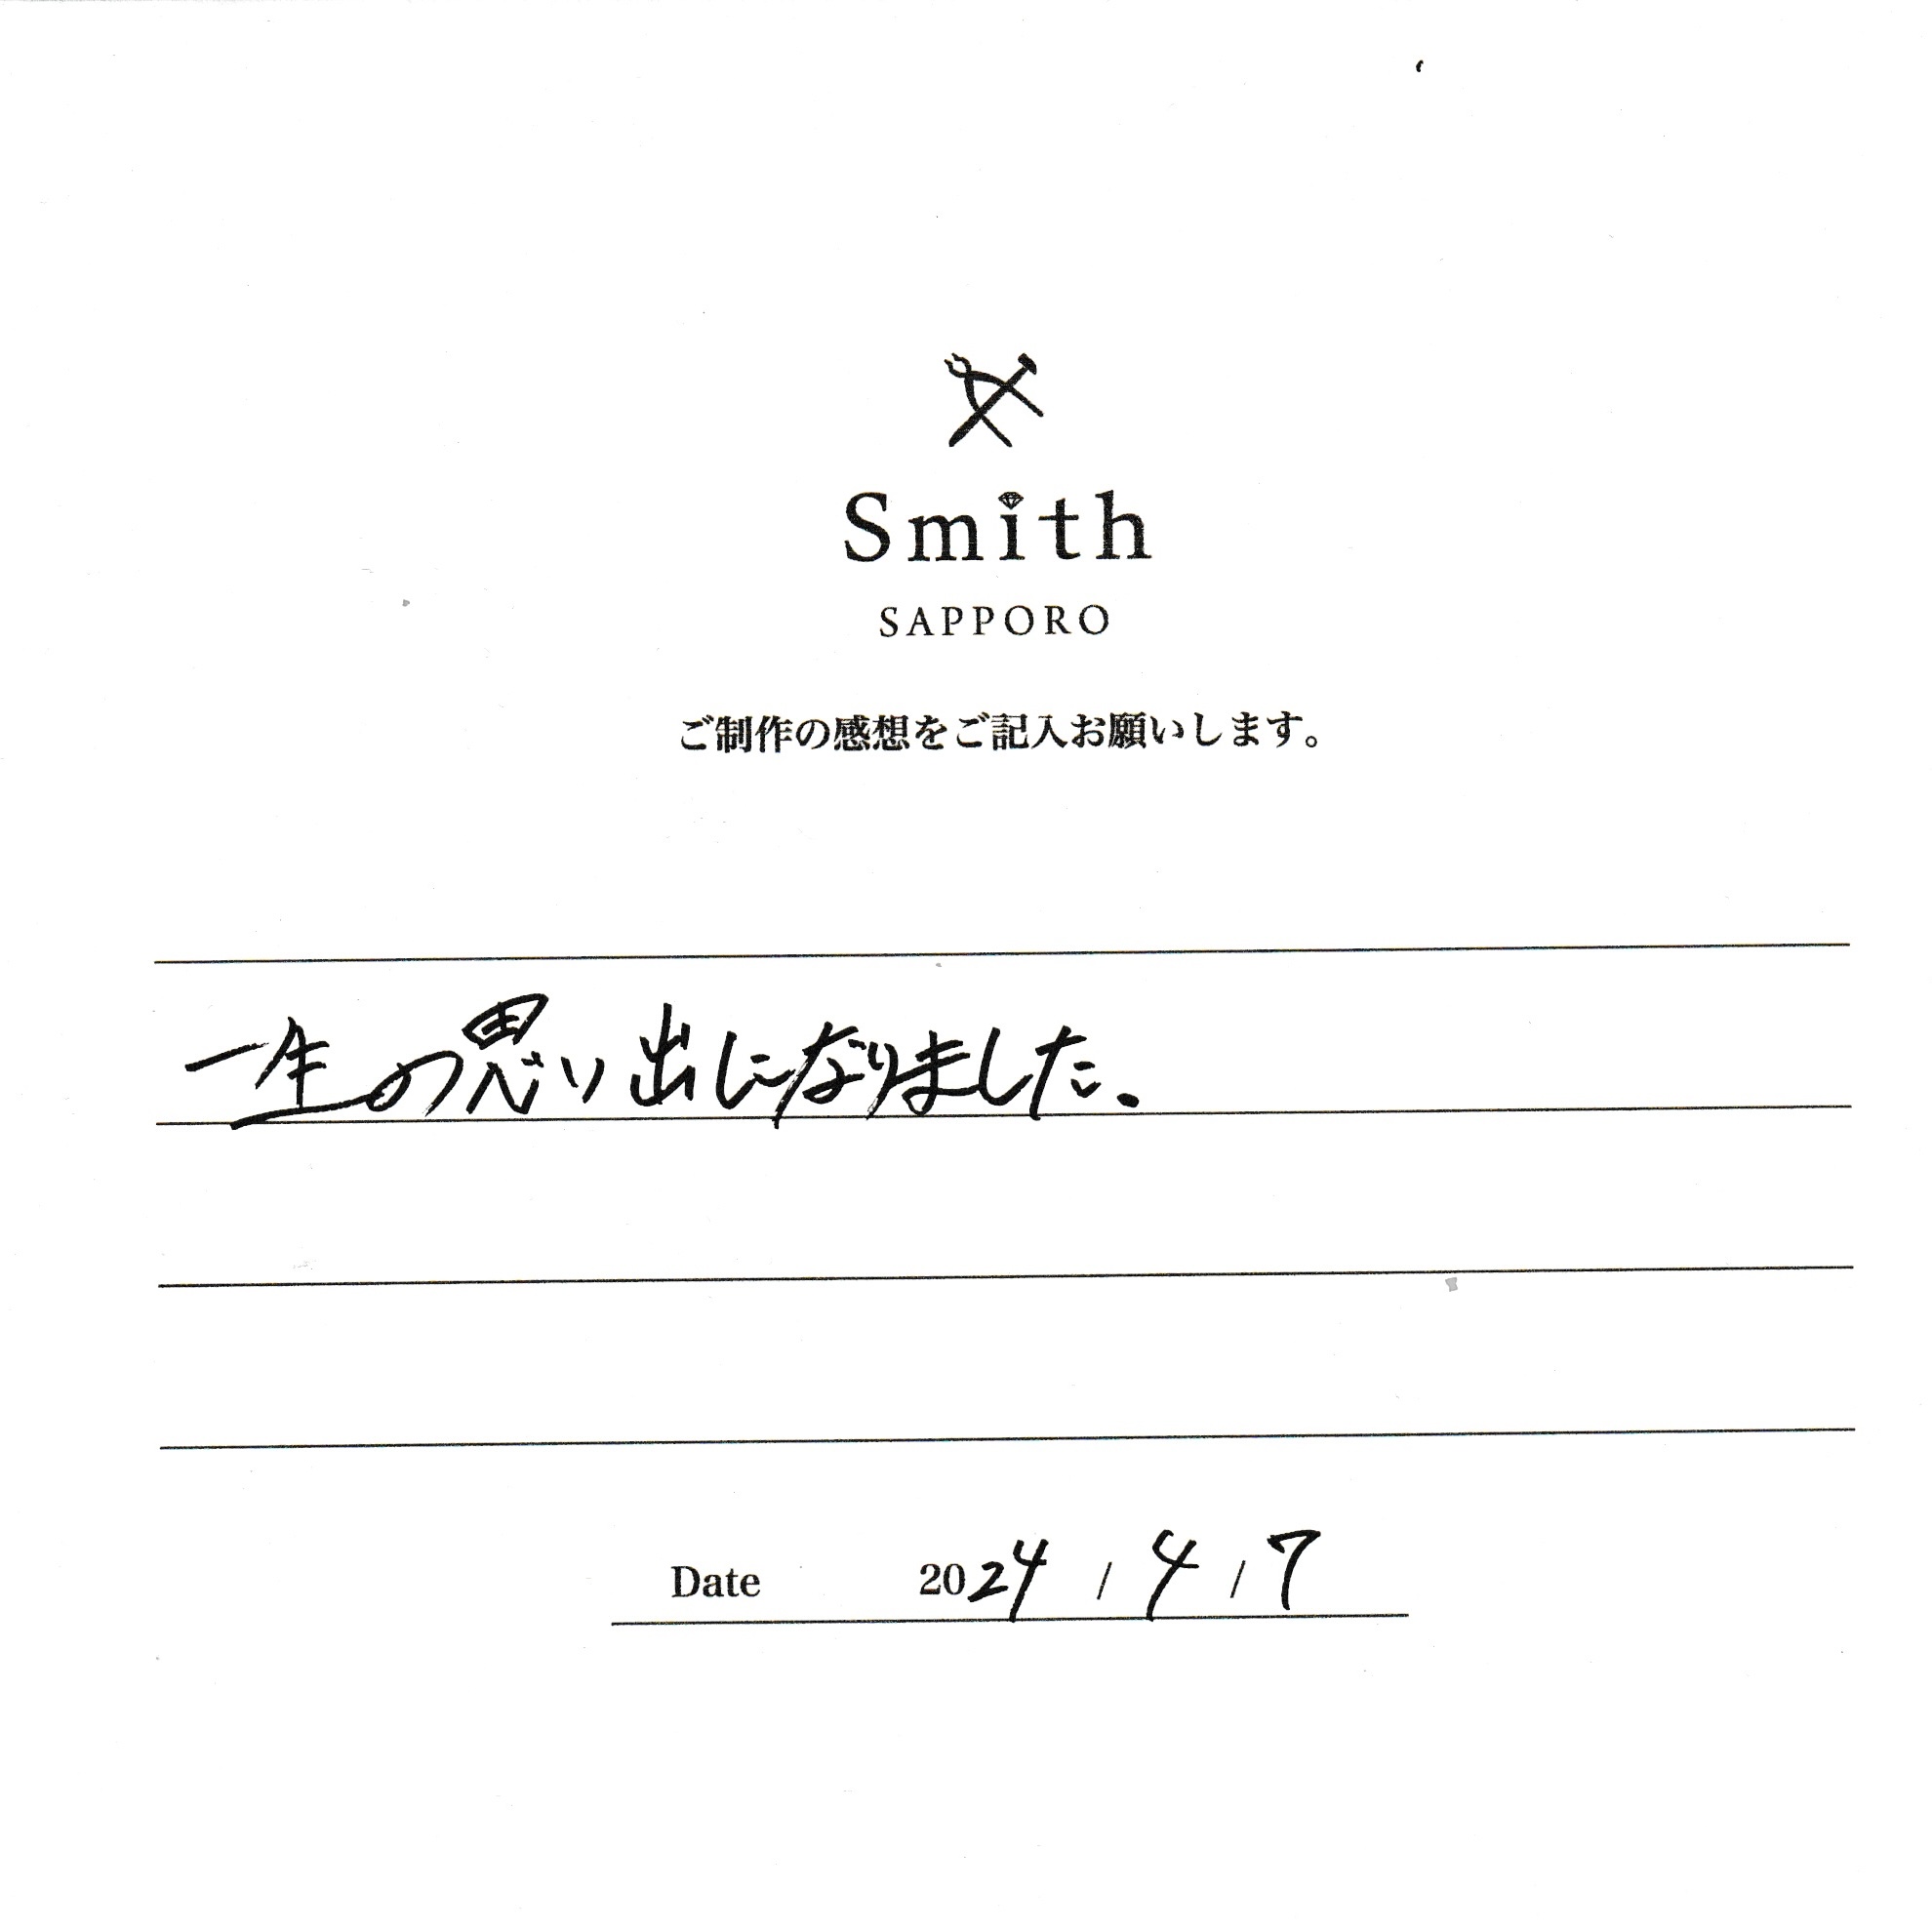 Smith
SAPPORO
ご制作の感想をご記入お願いします。
一生の思い出になりました.
Date 2024 / 4 / 7